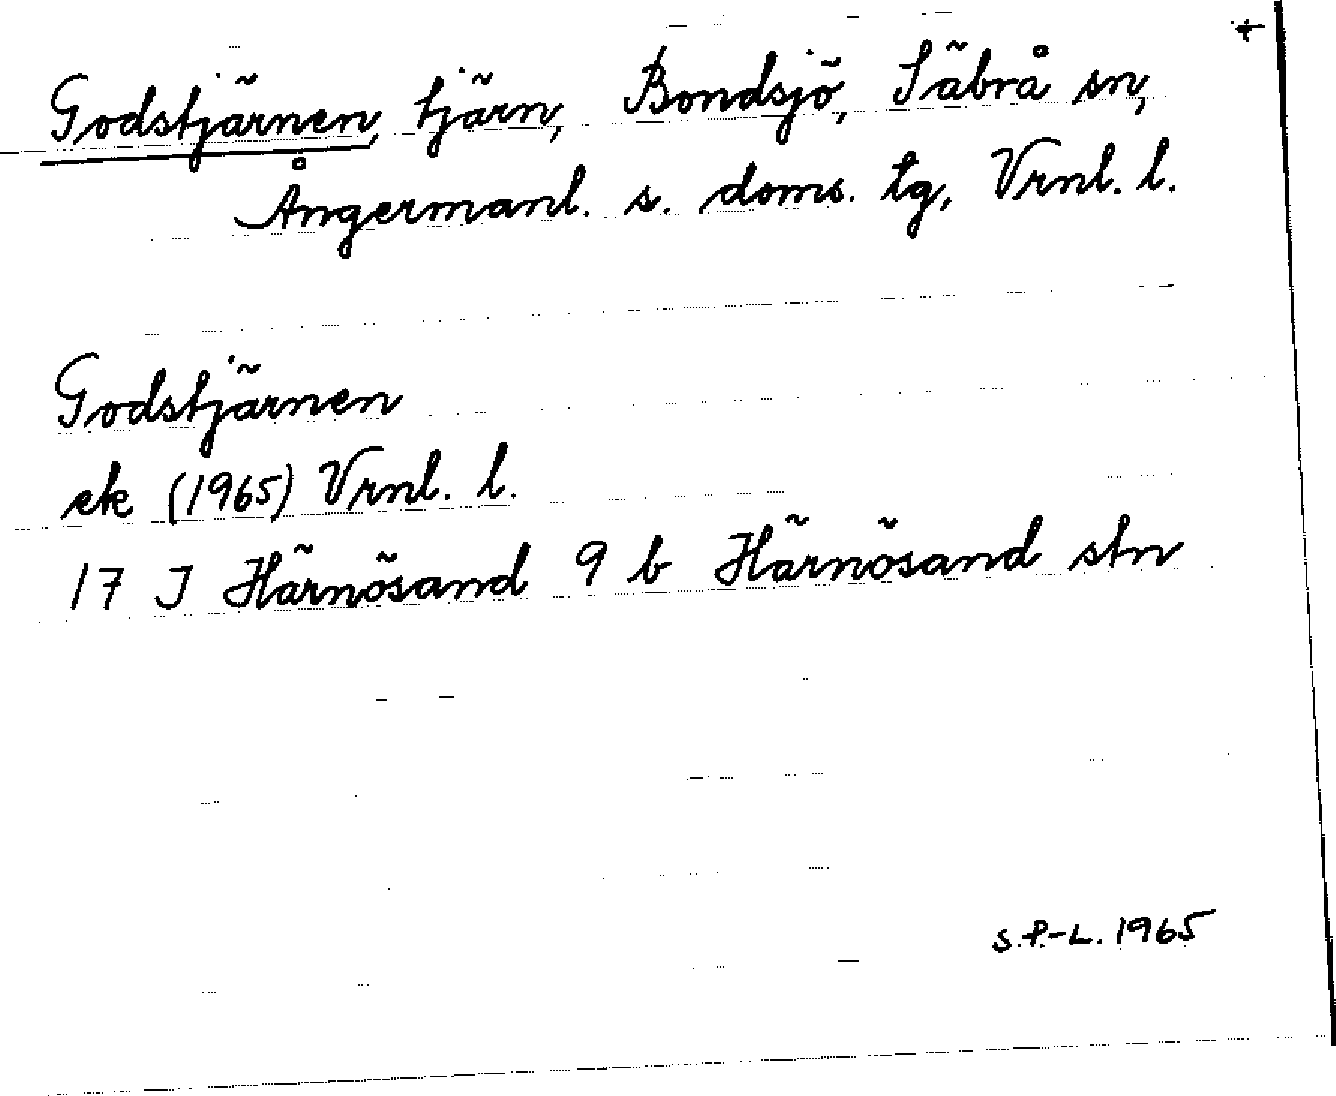 +
Godstjärnen, tjärn, Bondsjö, Säbrå sn,
Ångermanl. s. doms. tg, Vrnl. l.
Godstjärnen
ek (1965) Vrnl. l.
17 J Härnösand 9 b Härnösand stn
S.P.-L. 1965